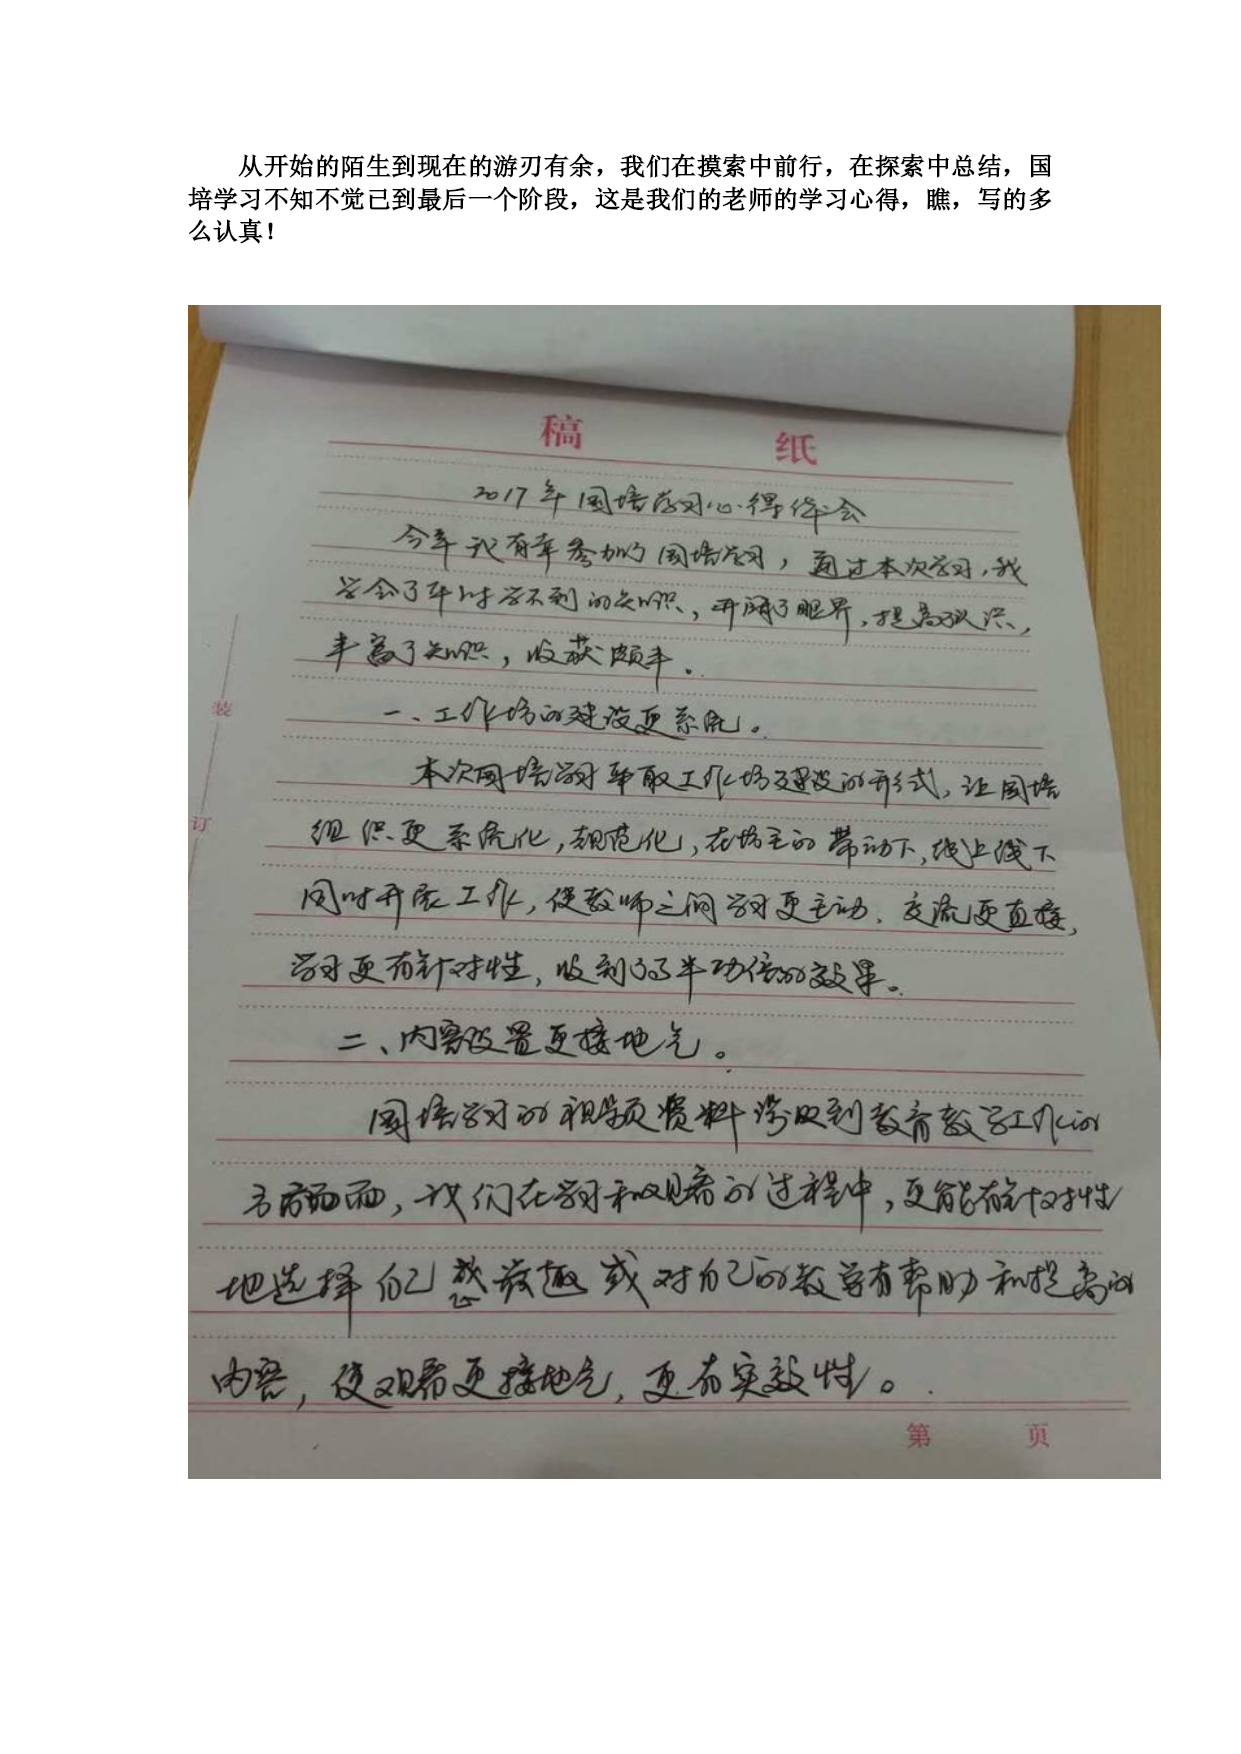 从开始的陌生到现在的游刃有余，我们在摸索中前行，在探索中总结，国
培学习不知不觉已到最后一个阶段，这是我们的老师的学习心得，瞧，写的多
么认真！
稿 纸
2017年国培学习心得体会
今年我有幸参加了国培学习，通过本次学习，我
学会了平时学不到的知识，开阔了眼界，提高了认识，
丰富了知识，收获颇丰。
一、工作坊的建设更系统。
装
本次国培学习采取工作坊建设的形式，让国培
订
组织更系统化，规范化，在坊主的带动下，线上线下
同时开展工作，使教师之间学习更主动、交流更直接，
学习更有针对性，收到了事半功倍的效果。
二、内容设置更接地气。
国培学习的视频资料涉及到教育教学工作的
方方面面，我们在学习和观看的过程中，更能有针对性
地选择自己感兴趣或对自己的教学有帮助和提高的
内容，使观看更接地气，更有实效性。
第 页